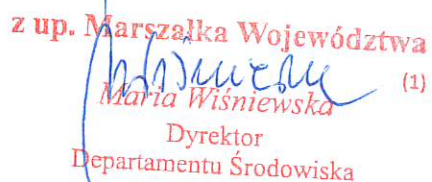 z up. Marszałka Województwa
(1)
Maria Wiśniewska
Dyrektor
Departamentu Środowiska